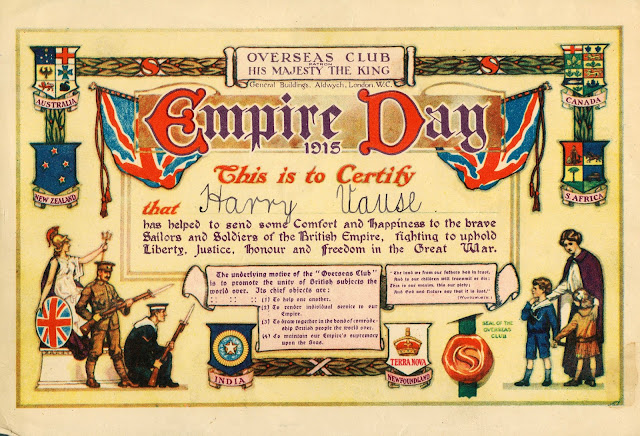 OVERSEAS CLUB
PATRON
HIS MAJESTY THE KING
General Buildings, Aldwych, London. W.C.
AUSTRALIA
CANADA
S
S
Empire Day
1915
NEW ZEALAND
S. AFRICA
This is to Certify
that Harry Vause.
has helped to send some Comfort and Happiness to the brave
Sailors and Soldiers of the British Empire, fighting to uphold
Liberty, Justice, Honour and Freedom in the Great War.
The underlying motive of the "Overseas Club"
is to promote the unity of British subjects the
world over. Its chief objects are:
(1) To help one another.
(2) To render individual service to our
Empire.
(3) To draw together in the bond of comrade-
ship British people the world over.
(4) To maintain our Empire's supremacy
upon the Seas.
The land we from our fathers had in trust,
And to our children will transmit or die:
This is our maxim, this our piety;
And God and Nature say that it is just.
(Wordsworth)
INDIA
TERRA NOVA
NEWFOUNDLAND
S
SEAL OF THE
OVERSEAS
CLUB